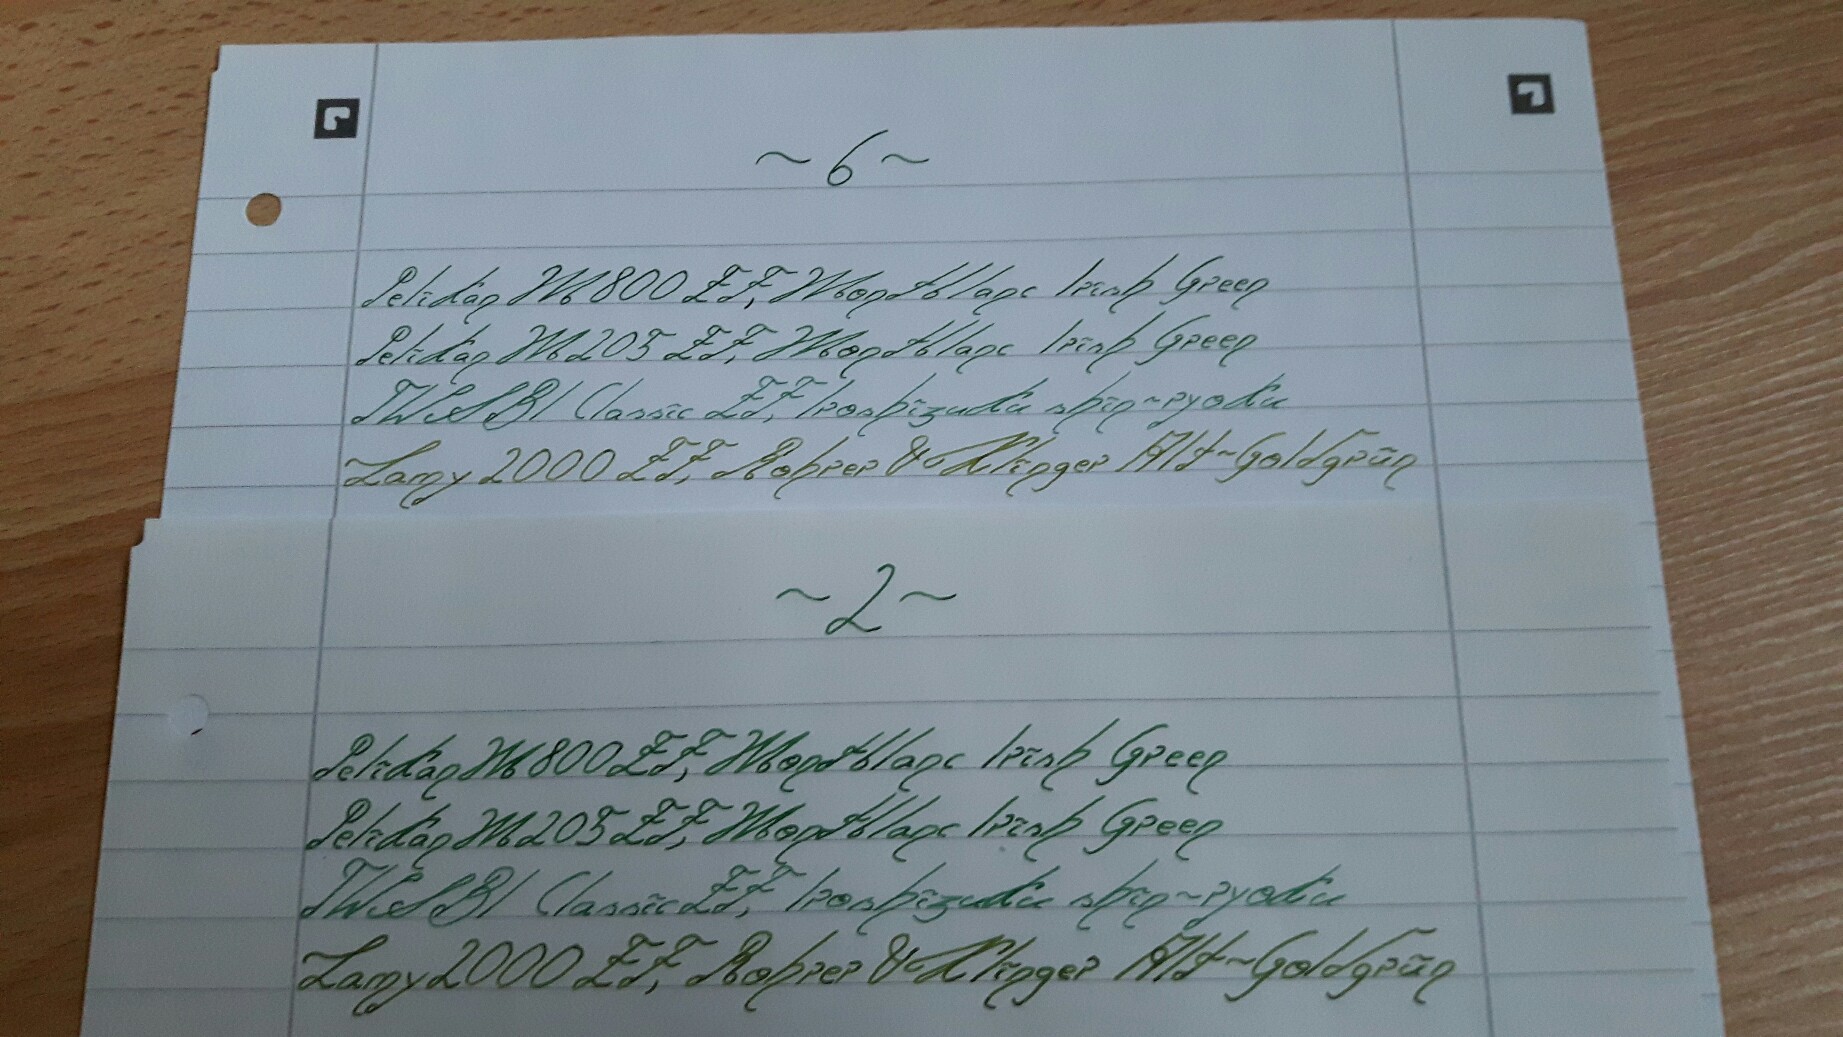 ~6~
Pelikan M800 EF, Montblanc Irish Green
Pelikan M205 EF, Montblanc Irish Green
TWSBI Classic EF, Iroshizuku shin-ryoku
Lamy 2000 EF, Rohrer & Klinger Alt-Goldgrün
~2~
Pelikan M800 EF, Montblanc Irish Green
Pelikan M205 EF, Montblanc Irish Green
TWSBI Classic EF, Iroshizuku shin-ryoku
Lamy 2000 EF, Rohrer & Klinger Alt-Goldgrün